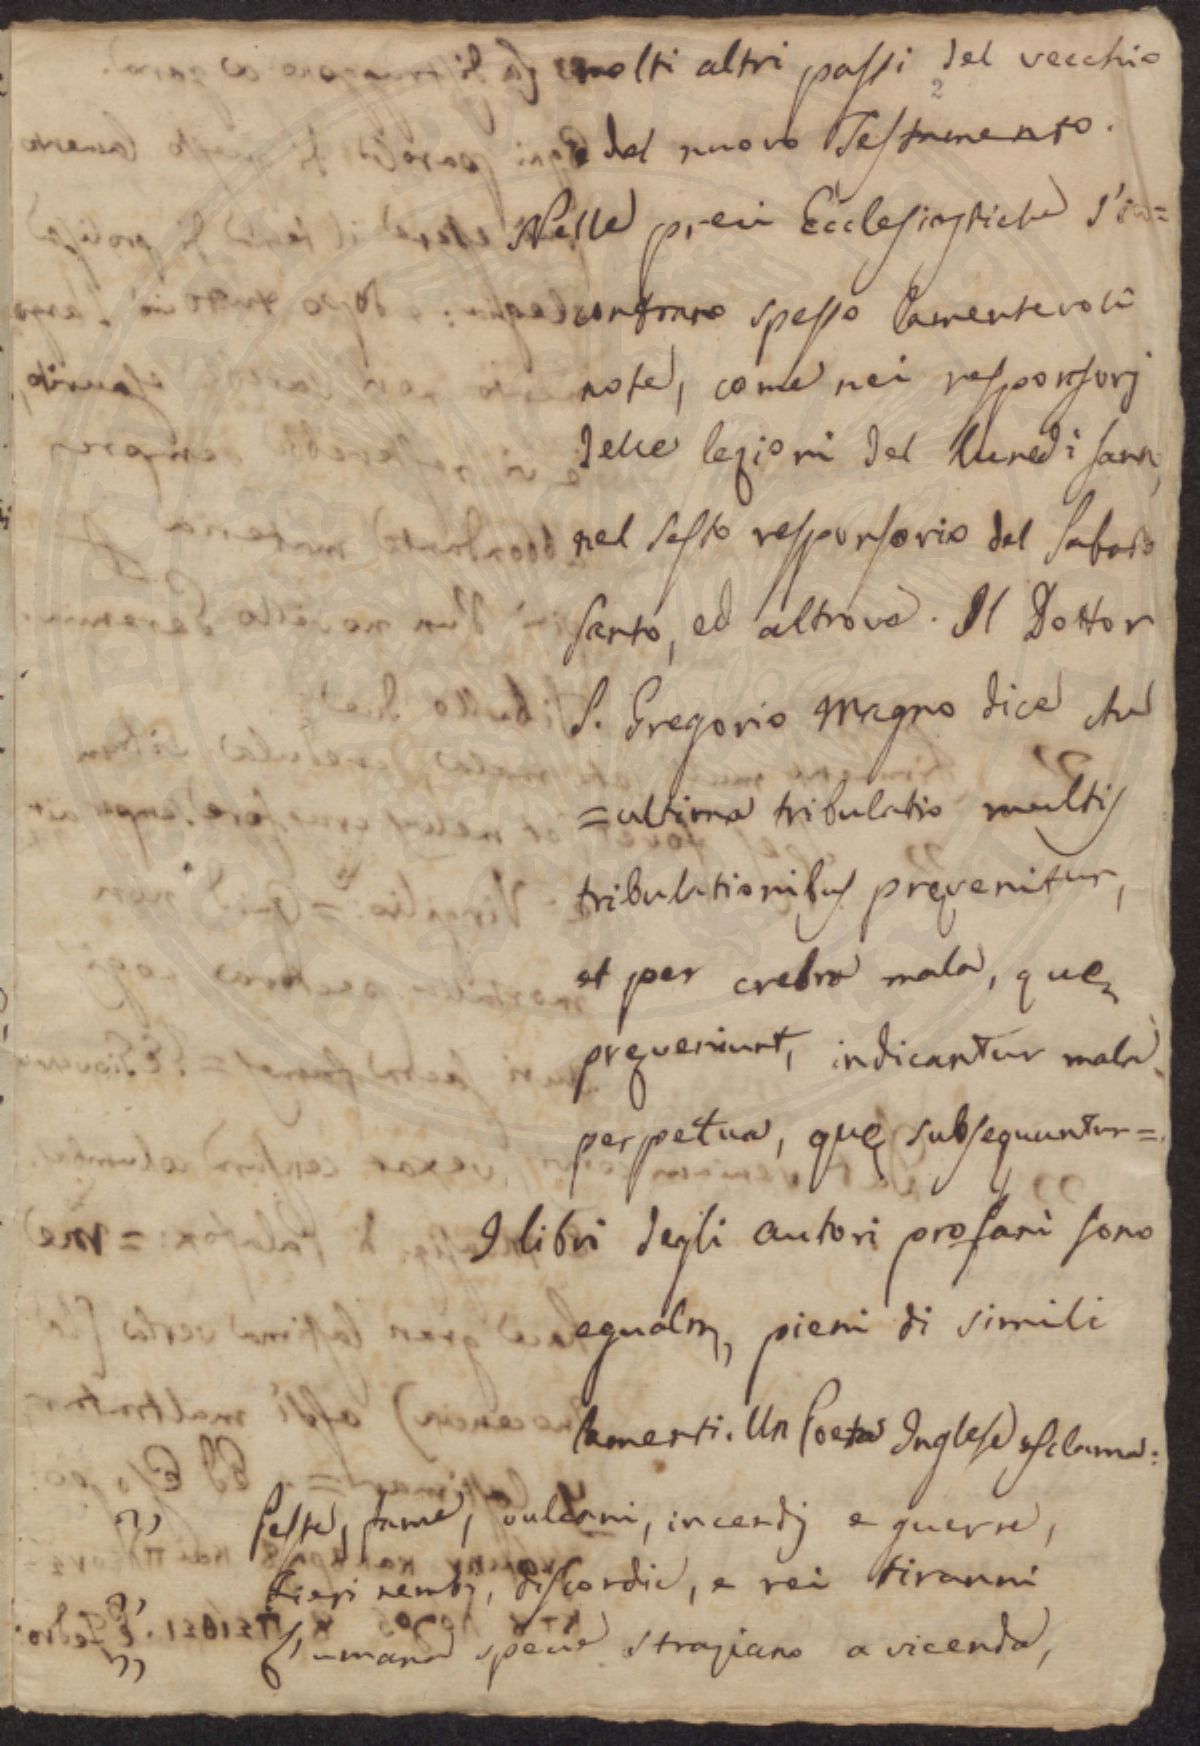 molti altri passi del vecchio
2
e del nuovo Testamento.
Nelle preci Ecclesiastiche s'in=
contrano spesso lamentevoli
note, come nei responsorj
delle lezioni del lunedi santo,
nel sesto responsorio del Sabato
Santo, ed altrove. Il Dottor
S. Gregorio Magno dice che
=ultima tribulatio multis
tribulationibus pręvenitur,
et per crebra mala, quę
pręveniunt, indicantur mala
perpetua, quę subsequuntur=.
I libri degli autori profani sono
egualm, pieni di simili
lamenti. Un Poeta Inglese esclama:
Peste, fame, vulcani, incendj e guerre,
Fieri nembi, discordie, e rei tiranni
L'umana specie straziano a vicenda,